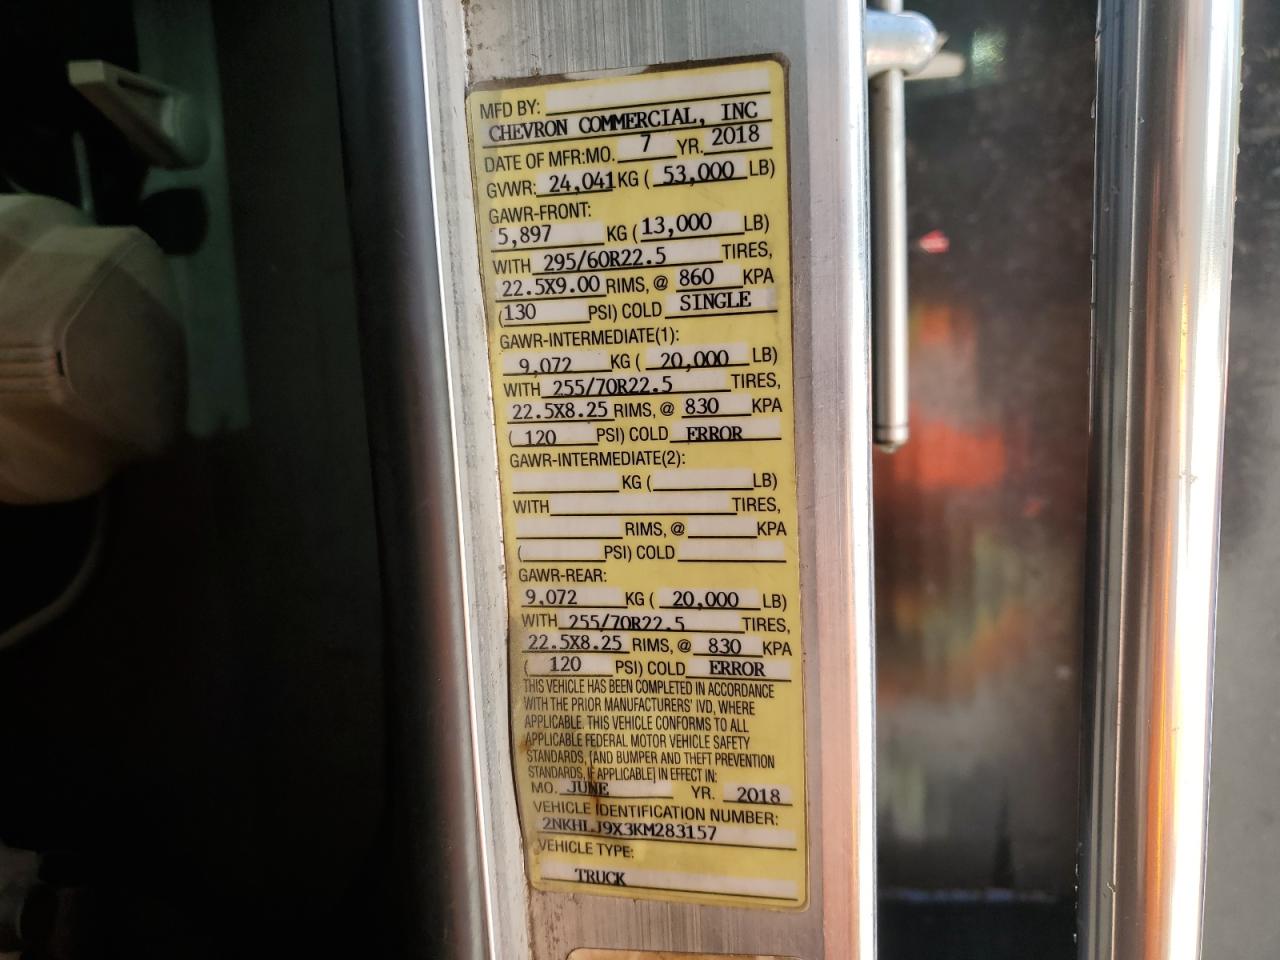 MFD BY:
CHEVRON COMMERCIAL, INC
DATE OF MFR:MO. 7 YR. 2018
GVWR: 24,041 KG ( 53,000 LB)
GAWR-FRONT:
5,897 KG ( 13,000 LB)
WITH 295/60R22.5 TIRES,
22.5X9.00 RIMS, @ 860 KPA
(130 PSI) COLD SINGLE
GAWR-INTERMEDIATE(1):
9,072 KG ( 20,000 LB)
WITH 255/70R22.5 TIRES,
22.5X8.25 RIMS, @ 830 KPA
( 120 PSI) COLD ERROR
GAWR-INTERMEDIATE(2):
KG ( LB)
WITH TIRES,
RIMS, @ KPA
( PSI) COLD
GAWR-REAR:
9,072 KG ( 20,000 LB)
WITH 255/70R22.5 TIRES,
22.5X8.25 RIMS, @ 830 KPA
( 120 PSI) COLD ERROR
THIS VEHICLE HAS BEEN COMPLETED IN ACCORDANCE
WITH THE PRIOR MANUFACTURERS' IVD, WHERE
APPLICABLE. THIS VEHICLE CONFORMS TO ALL
APPLICABLE FEDERAL MOTOR VEHICLE SAFETY
STANDARDS, [AND BUMPER AND THEFT PREVENTION
STANDARDS, IF APPLICABLE] IN EFFECT IN:
MO. JUNE YR. 2018
VEHICLE IDENTIFICATION NUMBER:
2NKHLJ9X3KM283157
VEHICLE TYPE:
TRUCK